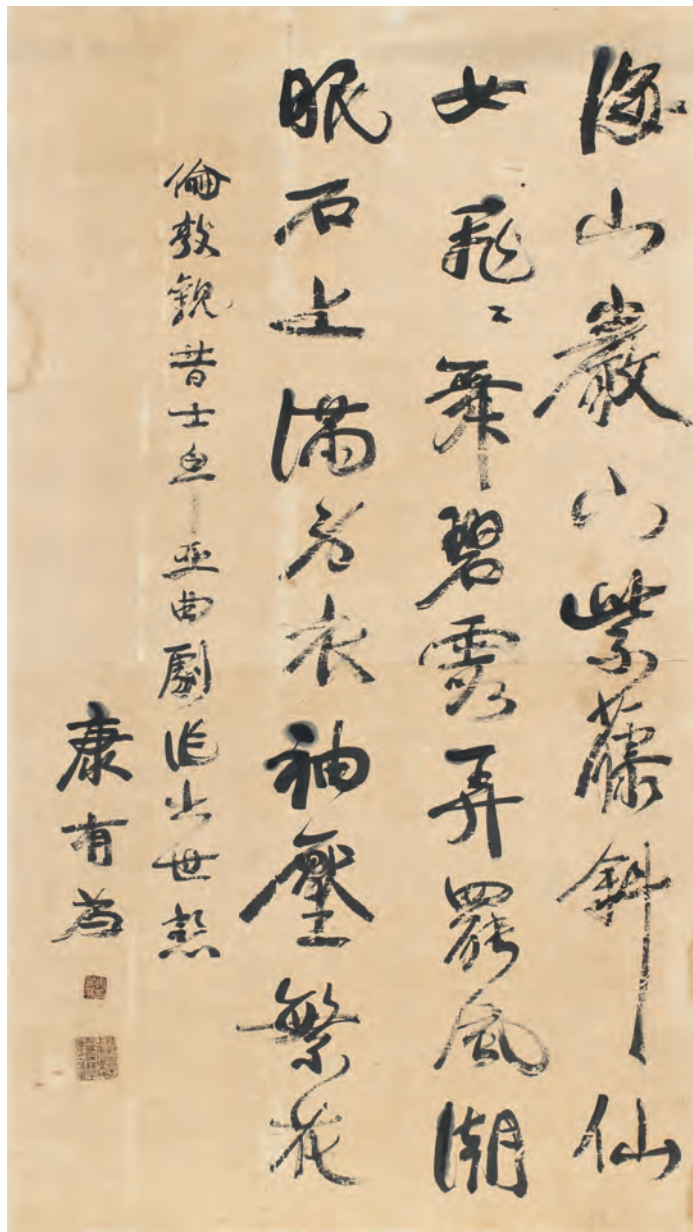 海山巖山紫藤斜仙
女飛〻舞碧霞弄罷風潮
眠石上滿身衣袖壓繁花
倫敦觀昔士卑亞曲劇作出世想
康有為